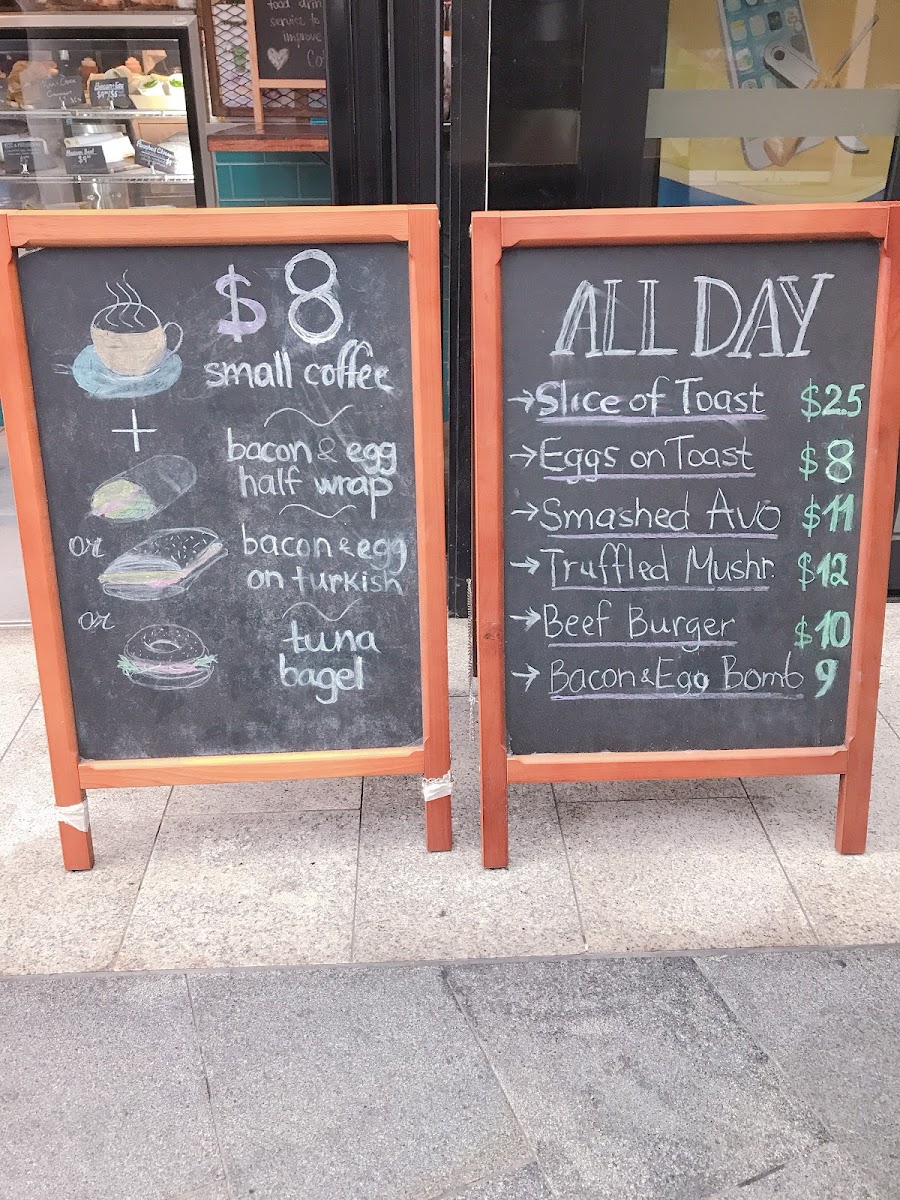 food drin
service to
improve
Co
$8
small coffee
+
bacon & egg
half wrap
or
bacon & egg
on turkish
or
tuna
bagel
ALL DAY
→Slice of Toast $25
→Eggs on Toast $8
→Smashed Avo $11
→Truffled Mushr. $12
→Beef Burger $10
→Bacon & Egg Bomb 9